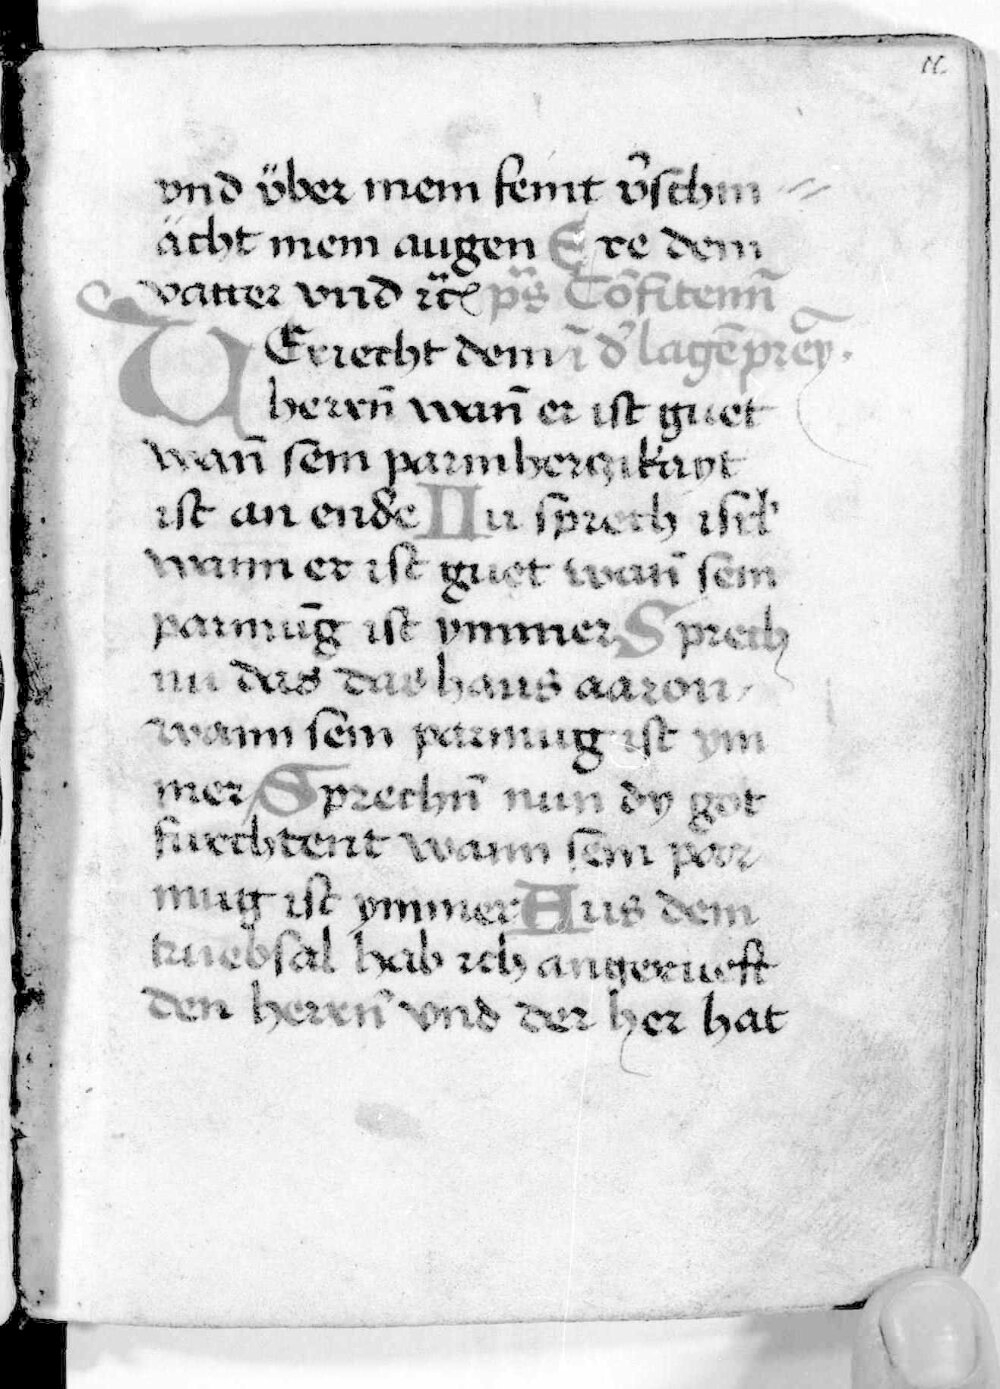 11.
vnd v̈ber mein feint v̄schm
ächt mein augen Ere dem
vatter vnd ꝛc̈ ps̈ Cōfitemī
VErriecht dem ī d' lagē prēy.
herrn̄ wan̄ er ist guet
wan̄ sein parmherczikayt
ist an ende Nu sprech isrl'
wann er ist guet wan̄ sein
parmūg ist ymmer Sprech
nu das das haus aaron
wann sein parmug ist ym
mer Sprechn̄ nun dy got
furchtent wann sein par
mug ist ymmer Aus dem
truebsal hab ich angerueft
den herrn̄ vnd der her hat